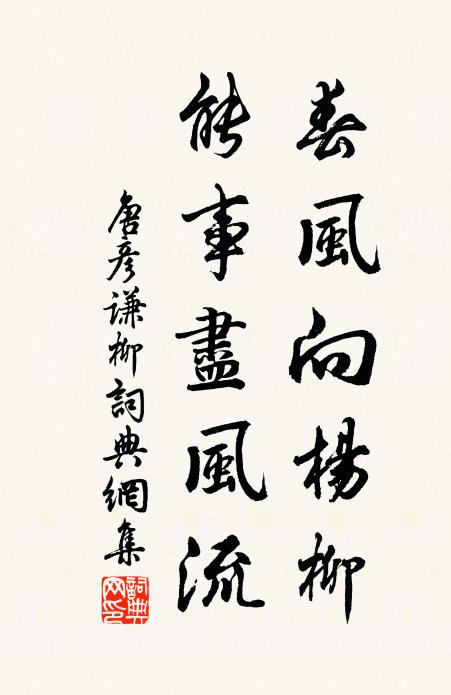 春風向楊柳
能事盡風流
唐彦謙柳詞典網集
詞典网印